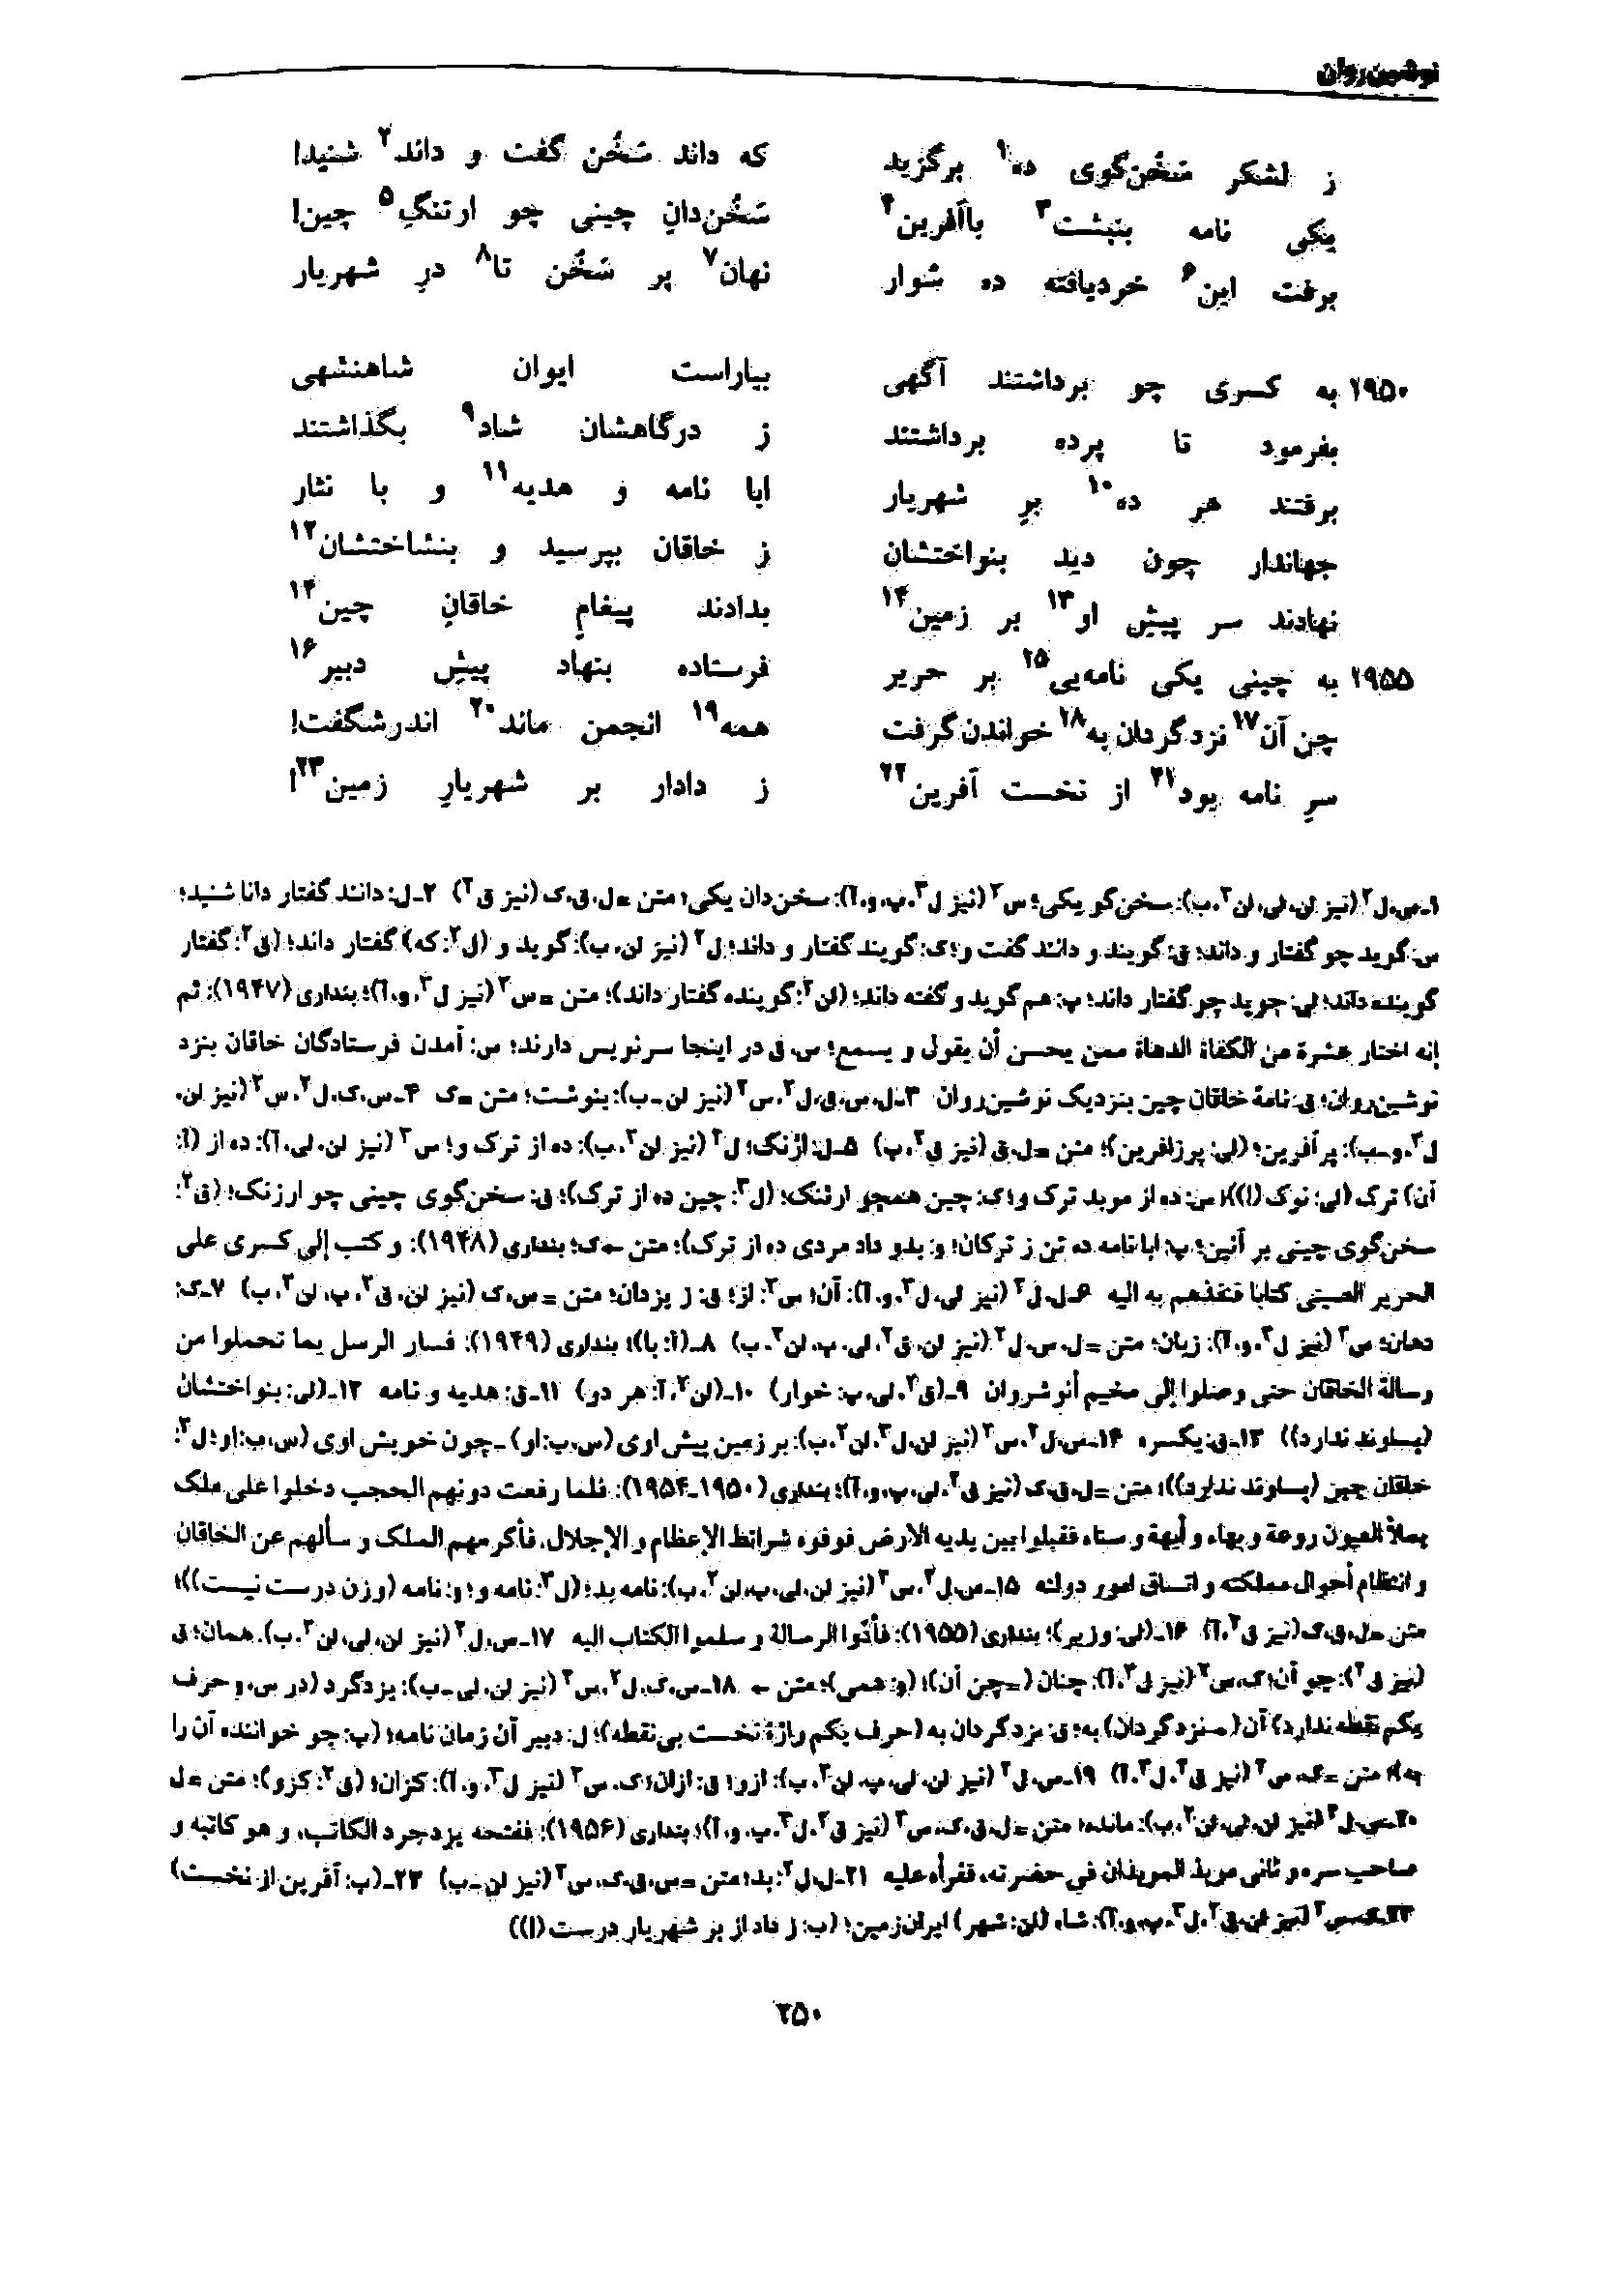 نوشین‌روان
ز لشکر سَخُن‌گوی ده۱ برگزید که داند سَخُن گفت و داند۲ شنید!
یکی نامه بنبشت۳ باآفرین۴ سَخُن‌دانِ چینی چو ارتنگِ۵ چین!
برفت این۶ خردیافته ده سُوار نهان۷ پر سَخُن تا۸ درِ شهریار
۱۹۵۰ به کسری چو برداشتند آگهی بیاراست ایوان شاهنشهی
بفرمود تا پرده برداشتند ز درگاهشان شاد۹ بگذاشتند
برفتند هر ده۱۰ برِ شهریار ابا نامه و هدیه۱۱ و با نثار
جهاندار چون دید بنواختشان ز خاقان بپرسید و بنشاختشان۱۲
نهادند سر پیشِ او۱۳ بر زمین۱۴ بدادند پیغامِ خاقانِ چین۱۴
۱۹۵۵ به چینی یکی نامه‌یی۱۵ بر حریر فرستاده بنهاد پیشِ دبیر۱۶
چن آن۱۷ نزد گردان به۱۸ خواندن گرفت همه۱۹ انجمن ماند۲۰ اندر شگفت!
سرِ نامه بود۲۱ از نخست آفرین۲۲ ز دادار بر شهریارِ زمین۲۳!
۱ـ س، ل۲ (نیز لن، لی، لن۲، ب): سخن‌گو یکی؛ س۲ (نیز ل۳، پ، و، آ): سخن‌دان یکی؛ متن = ل، ق، ک (نیز ق۲) ۲ـ ل: دانند گفتار دانا شنید؛
س: گوید چو گفتار و داند؛ ق: گویند و دانند گفت و؛ ک: گویند گفتار و داند؛ ل۲ (نیز لن، ب): گوید و (ل۲: که) گفتار داند؛ (ق۲: گفتار
گوینده داند؛ لی: جوید چو گفتار داند؛ پ: هم گوید و گفته داند؛ (لن۲: گوینده گفتار داند)؛ متن = س۲ (نیز ل۳، و، آ)؛ بنداری (۱۹۴۷): ثم
إنه اختار عشرة من الکفاة الدهاة ممن یحسن أن یقول و یسمع؛ س، ق در اینجا سرنویس دارند؛ س: آمدن فرستادگان خاقان بنزد
نوشین‌روان؛ ق: نامهٔ خاقان چین بنزدیک نوشین‌روان ۳ـ ل، س، ق، ل۲، س۲ (نیز لن ـ ب): بنوشت؛ متن = ک ۴ـ س، ک، ل۲، س۲ (نیز لن،
ل۳، و ـ ب): پرآفرین؛ (لی: پرزافرین)؛ متن = ل، ق (نیز ق۲، پ) ۵ـ ل: ارژنگ؛ ل۲ (نیز لن۲، ب): ده از ترک و؛ س۲ (نیز لن، لی، آ): ده از (آ:
آن) ترک (لی: نوک (!))؛ س: ده از موبد ترک و؛ ک: چین همچو ارتنگ؛ (ل۳: چین ده از ترک)؛ ق: سخن‌گوی چینی چو ارزنگ؛ (ق۲:
سخن‌گوی چینی بر آئین؛ پ: ابا نامه ده تن ز ترکان؛ و: بدو داد مردی ده از ترک)؛ متن ← ک؛ بنداری (۱۹۴۸): و کتب إلی کسری علی
الحریر الصینی کتابا فنفذهم به الیه ۶ـ ل، ل۲ (نیز لی، ل۳، و، آ): آن؛ س۲: از؛ ق: ز یزدان؛ متن = س، ک (نیز لن، ق۲، پ، لن۲، ب) ۷ـ ک:
دهان؛ س۲ (نیز ل۳، و، آ): زبان؛ متن = ل، س، ل۲ (نیز لن، ق۲، لی، پ، لن۲، ب) ۸ـ (آ: با)؛ بنداری (۱۹۴۹): فسار الرسل بما تحملوا من
رسالة الخاقان حتی وصلوا إلی مخیم أنوشروان ۹ـ (ق۲، لی، پ: خوار) ۱۰ـ (لن۲، آ: هر دو) ۱۱ـ ق: هدیه و نامه ۱۲ـ (لی: بنواختشان
(پساوند ندارد)) ۱۳ـ ق: یکسره ۱۴ـ س، ل۲، س۲ (نیز لن، ل۳، لن۲، ب): بر زمین پیش اوی (س، ب: او) ـ چون خویش اوی (س، ب: او؛ ل۲:
خاقان چین (پساوند ندارد))؛ متن = ل، ق، ک (نیز ق۲، لی، پ، و، آ)؛ بنداری (۱۹۵۰ـ۱۹۵۴): فلما رفعت دونهم الحجب دخلوا علی ملک
یملأ العیون روعة و بهاء و أبهة و سناء فقبلوا بین یدیه الارض فوفوه شرائط الإعظام و الإجلال. فأکرمهم الملک و سألهم عن الخاقان
و انتظام أحوال مملکته و اتساق امور دولته ۱۵ـ س، ل۲، س۲ (نیز لن، لی، پ، لن۲، ب): نامه بد؛ (ل۳: نامه و؛ و: نامه (وزن درست نیست))؛
متن = ل، ق، ک (نیز ق۲، آ) ۱۶ـ (لی: وزیر)؛ بنداری (۱۹۵۵): فأدّوا الرسالة و سلموا الکتاب الیه ۱۷ـ س، ل۲ (نیز لن، لی، لن۲، ب): همان؛ ق
(نیز ق۲): چو آن؛ ک، س۲ (نیز ل۳، آ): چنان (= چن آن)؛ (و: همی)؛ متن ← ۱۸ـ س، ک، ل۲، س۲ (نیز لن، لی ـ ب): یزدگرد (در س، و حرف
یکم نقطه ندارد) آن (= نزد گردان) به؛ ق: یزدگردان به (حرف یکم واژهٔ نخست بی‌نقطه)؛ ل: دبیر آن زمان نامه؛ (پ: چو خواننده آن را
به)؛ متن = ک، س۲ (نیز ق۲، ل۳، آ) ۱۹ـ س، ل۲ (نیز لن، لی، پ، لن۲، ب): ازو؛ ق: ازان؛ ک، س۲ (نیز ل۳، و، آ): کزان؛ (ق۲: کزو)؛ متن = ل
۲۰ـ س، ل۲ (نیز لن، لی، لن۲، ب): مانده؛ متن = ل، ق، ک، س۲ (نیز ق۲، ل۳، پ، و، آ)؛ بنداری (۱۹۵۶): ففتحه یزدجرد الکاتب، و هو کاتبه و
صاحب سره و ثانی موبذ الموبذان فی حضرته، فقرأه علیه ۲۱ـ ل، ل۲: بد؛ متن = س، ق، ک، س۲ (نیز لن ـ ب) ۲۲ـ (ب: آفرین از نخست)
۲۳ـ ک، س۲ (نیز لن، ق۲، ل۳، پ، و، آ): شاه (لن: شهر) ایران‌زمین؛ (ب: ز داد از بر شهریار درست (!))
۲۵۰